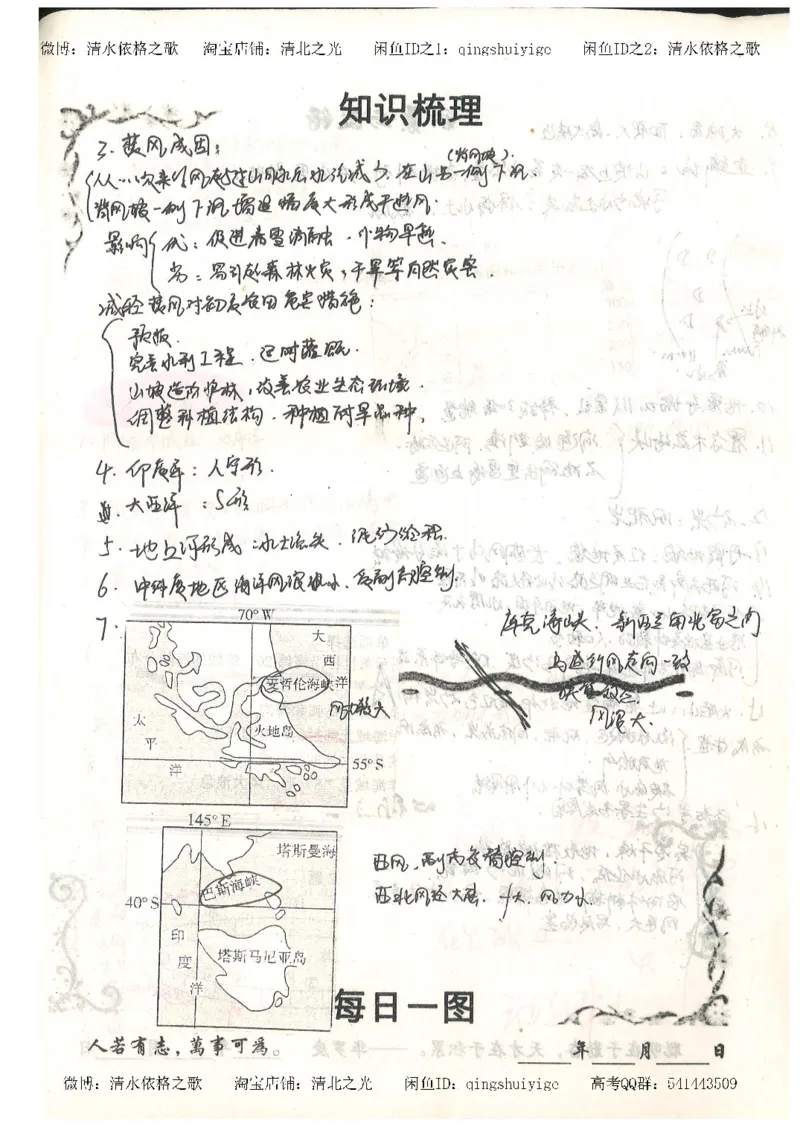 微博：清水依格之歌 淘宝店铺：清北之光 闲鱼ID之1：qingshuiyige 闲鱼ID之2：清水依格之歌
知识梳理
3. 焚风成因：
(背风坡)
背风坡一侧下沉增温幅度大形成干热风.
影响 优：促进春雪消融、作物早熟、
劣：易引起森林火灾，干旱等自然灾害.
减轻焚风对农业的危害措施：
预报.
完善水利工程.及时灌溉.
山坡造防护林，改善农业生态环境.
调整种植结构.种植耐旱品种，
4. 印度洋：人字形.
大西洋：S形
5. 地上河形成：水土流失.泥沙淤积.
6. 中纬度地区海洋风浪
7.
70°W
大
西
洋
麦哲伦海峡
风力较大
太
平
洋
火地岛
55°S
库克海峡.新西兰南北岛之间
与盛行风走向一致
狭管效应.
风浪大.
145°E
塔斯曼海
巴斯海峡
40°S
印
度
洋
塔斯马尼亚岛
西风，
每日一图
人若有志，萬事可為。
年 月 日
微博：清水依格之歌 淘宝店铺：清北之光 闲鱼ID：qingshuiyige 高考QQ群：541443509